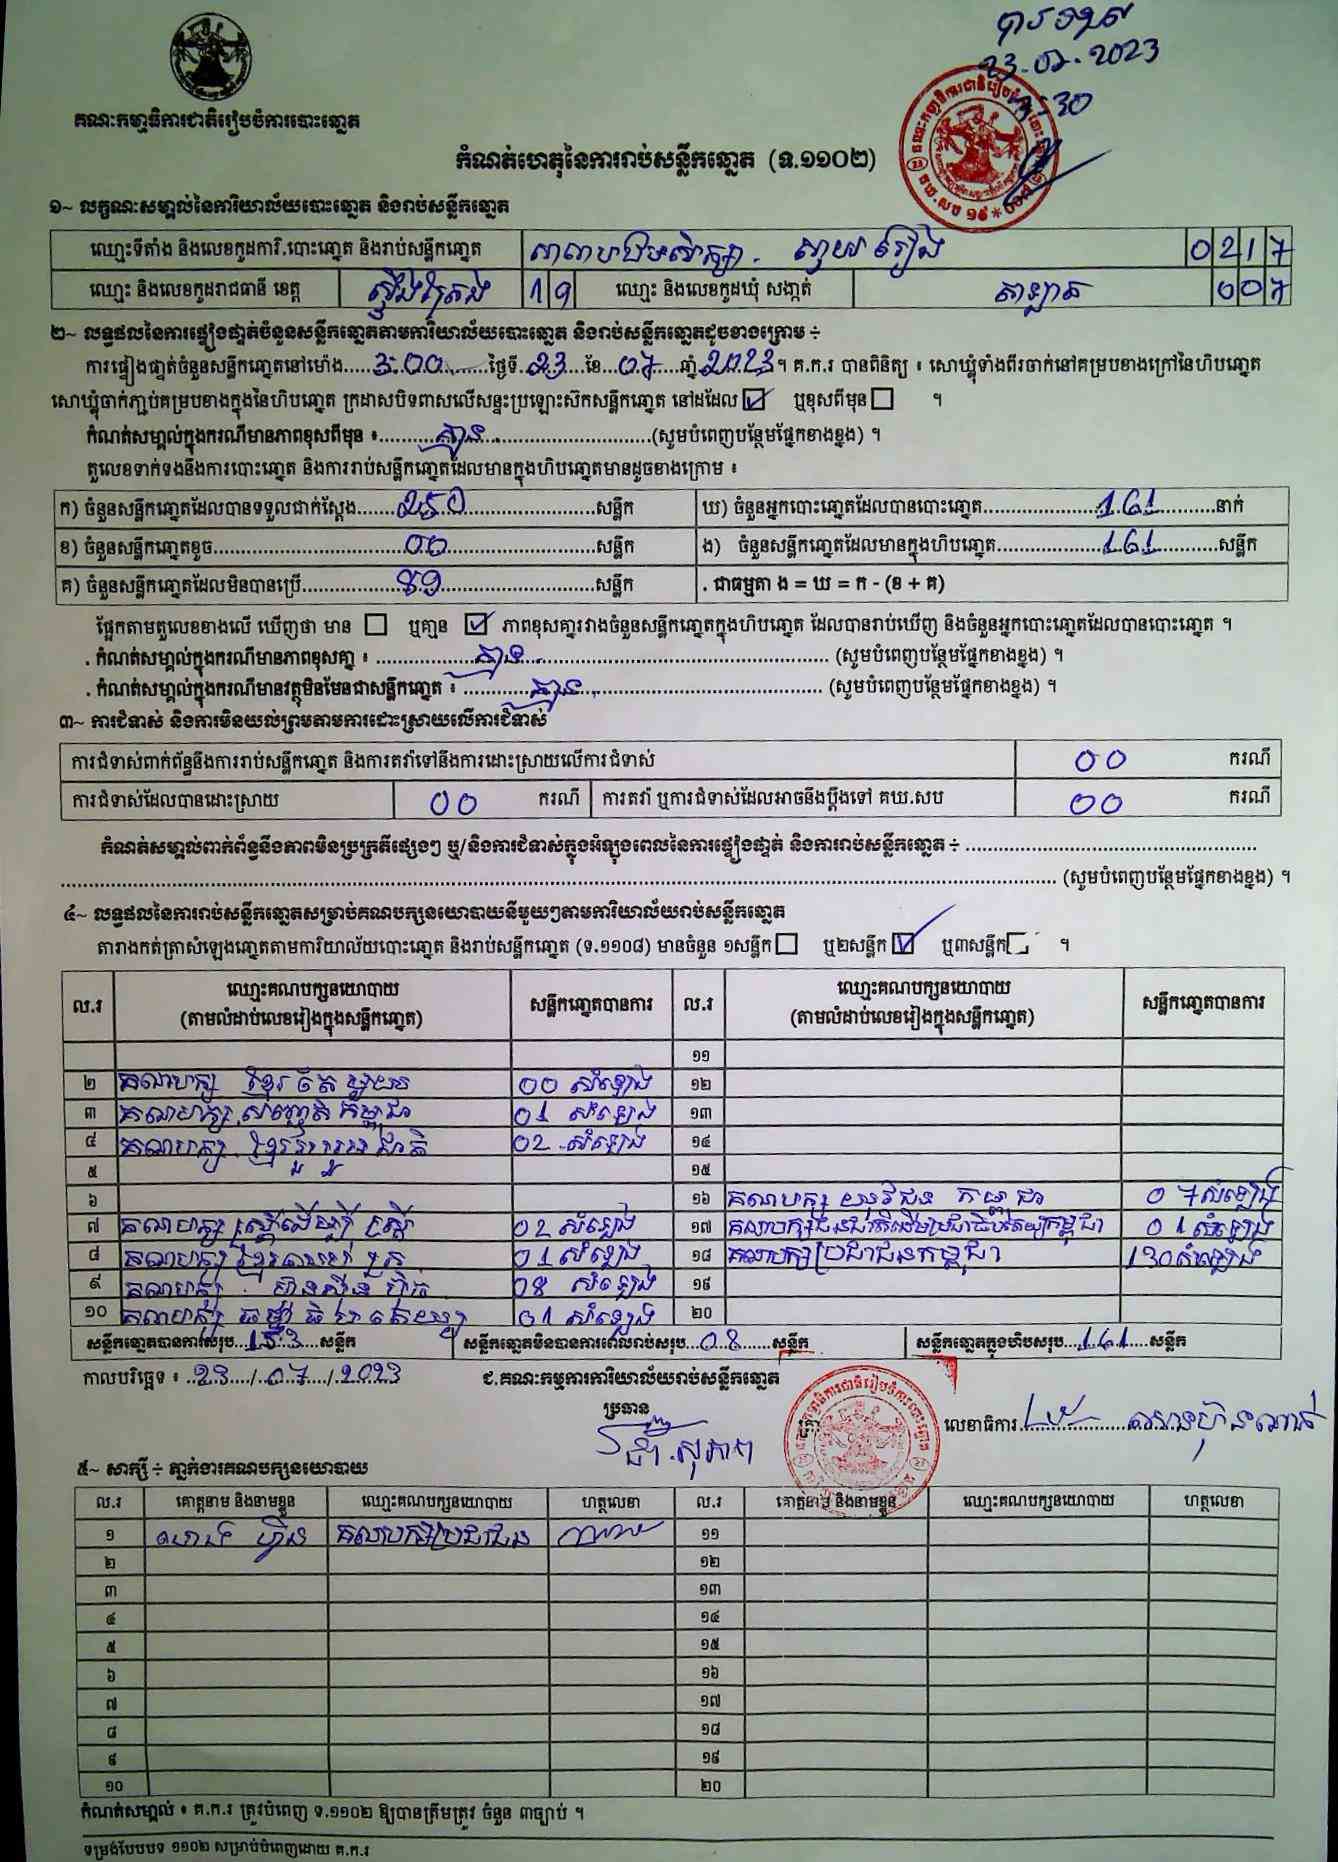 បារទុត
23-07-2023
គណៈកម្មាធិការជាតិរៀបចំការបោះឆ្នោត
កំណត់ហេតុនៃការរាប់សន្លឹកឆ្នោត (ទ.១១០២)
១~ លក្ខណៈសម្គាល់នៃការិយាល័យបោះឆ្នោត និងរាប់សន្លឹកឆ្នោត
ឈ្មោះទីតាំង និងលេខកូដការិ.បោះឆ្នោត និងរាប់សន្លឹកឆ្នោត សាលាបឋមសិក្សា . ស្វាយរៀង 0217
ឈ្មោះ និងលេខកូដរាជធានី ខេត្ត ស្ទឹងត្រែង 19 ឈ្មោះ និងលេខកូដឃុំ សង្កាត់ តាឡាត 007
២~ លទ្ធផលនៃការផ្ទៀងផ្ទាត់ចំនួនសន្លឹកឆ្នោតតាមការិយាល័យបោះឆ្នោត និងរាប់សន្លឹកឆ្នោតដូចខាងក្រោម ÷
ការផ្ទៀងផ្ទាត់ចំនួនសន្លឹកឆ្នោតនៅម៉ោង 3:00 ថ្ងៃទី 23 ខែ 07 ឆ្នាំ 2023 ។ គ.ក.រ បានពិនិត្យ ៖ សោឃ្លុំទាំងពីរចាក់នៅគម្របខាងក្រៅនៃហិបឆ្នោត
សោឃ្លុំចាក់ភ្ជាប់គម្របខាងក្នុងនៃហិបឆ្នោត ក្រដាសបិទពាសលើសន្ទះប្រឡោះស៊កសន្លឹកឆ្នោត នៅដដែល ☑ ឬខុសពីមុន ☐ ។
កំណត់សម្គាល់ក្នុងករណីមានភាពខុសពីមុន ៖ គ្មាន (សូមបំពេញបន្ថែមផ្នែកខាងខ្នង) ។
តួលេខទាក់ទងនឹងការបោះឆ្នោត និងការរាប់សន្លឹកឆ្នោតដែលមានក្នុងហិបឆ្នោតមានដូចខាងក្រោម ៖
ក) ចំនួនសន្លឹកឆ្នោតដែលបានទទួលជាក់ស្តែង 250 សន្លឹក ឃ) ចំនួនអ្នកបោះឆ្នោតដែលបានបោះឆ្នោត 161 នាក់
ខ) ចំនួនសន្លឹកឆ្នោតខូច 00 សន្លឹក ង) ចំនួនសន្លឹកឆ្នោតដែលមានក្នុងហិបឆ្នោត 161 សន្លឹក
គ) ចំនួនសន្លឹកឆ្នោតដែលមិនបានប្រើ 89 សន្លឹក . ជាធម្មតា ង = ឃ = ក - (ខ + គ)
ផ្អែកតាមតួលេខខាងលើ ឃើញថា មាន ☐ ឬគ្មាន ☑ ភាពខុសគ្នារវាងចំនួនសន្លឹកឆ្នោតក្នុងហិបឆ្នោត ដែលបានរាប់ឃើញ និងចំនួនអ្នកបោះឆ្នោតដែលបានបោះឆ្នោត ។
. កំណត់សម្គាល់ក្នុងករណីមានភាពខុសគ្នា ៖ គ្មាន (សូមបំពេញបន្ថែមផ្នែកខាងខ្នង) ។
. កំណត់សម្គាល់ក្នុងករណីមានវត្ថុមិនមែនជាសន្លឹកឆ្នោត ៖ គ្មាន (សូមបំពេញបន្ថែមផ្នែកខាងខ្នង) ។
៣~ ការជំទាស់ និងការមិនយល់ព្រមតាមការដោះស្រាយលើការជំទាស់
ការជំទាស់ពាក់ព័ន្ធនឹងការរាប់សន្លឹកឆ្នោត និងការតវ៉ាទៅនឹងការដោះស្រាយលើការជំទាស់ 00 ករណី
ការជំទាស់ដែលបានដោះស្រាយ 00 ករណី ការតវ៉ា ឬការជំទាស់ដែលអាចនឹងប្តឹងទៅ គឃ.សប 00 ករណី
កំណត់សម្គាល់ពាក់ព័ន្ធនឹងភាពមិនប្រក្រតីផ្សេងៗ ឬ/និងការជំទាស់ក្នុងអំឡុងពេលនៃការផ្ទៀងផ្ទាត់ និងការរាប់សន្លឹកឆ្នោត ÷
(សូមបំពេញបន្ថែមផ្នែកខាងខ្នង) ។
៤~ លទ្ធផលនៃការរាប់សន្លឹកឆ្នោតសម្រាប់គណបក្សនយោបាយនីមួយៗតាមការិយាល័យរាប់សន្លឹកឆ្នោត
តារាងកត់ត្រាសំឡេងឆ្នោតតាមការិយាល័យបោះឆ្នោត និងរាប់សន្លឹកឆ្នោត (ទ.១១០៨) មានចំនួន ១សន្លឹក ☐ ឬ២សន្លឹក ☑ ឬ៣សន្លឹក ☐ ។
ល.រ ឈ្មោះគណបក្សនយោបាយ (តាមលំដាប់លេខរៀងក្នុងសន្លឹកឆ្នោត) សន្លឹកឆ្នោតបានការ ល.រ ឈ្មោះគណបក្សនយោបាយ (តាមលំដាប់លេខរៀងក្នុងសន្លឹកឆ្នោត) សន្លឹកឆ្នោតបានការ
១១
២ គណបក្ស ខ្មែរតែមួយ 00 សំឡេង ១២
៣ គណបក្ស សញ្ជាតិកម្ពុជា 01 សំឡេង ១៣
៤ គណបក្ស ខ្មែររួបរួមជាតិ 02 សំឡេង ១៤
៥ ១៥
៦ ១៦ គណបក្ស យុវជន កម្ពុជា 07 សំឡេង
៧ គណបក្ស ស្ត្រីដើម្បីស្ត្រី 02 សំឡេង ១៧ គណបក្សជនជាតិដើមប្រជាធិបតេយ្យកម្ពុជា 01 សំឡេង
៨ គណបក្ស 01 សំឡេង ១៨ គណបក្សប្រជាជនកម្ពុជា 130 សំឡេង
៩ គណបក្ស ហ៊្វុនស៊ិនប៉ិច 08 សំឡេង ១៩
១០ គណបក្ស ធម្មាធិបតេយ្យ 01 សំឡេង ២០
សន្លឹកឆ្នោតបានការសរុប 153 សន្លឹក សន្លឹកឆ្នោតមិនបានការពេលរាប់សរុប 08 សន្លឹក សន្លឹកឆ្នោតក្នុងហិបសរុប 161 សន្លឹក
កាលបរិច្ឆេទ ៖ 23/07/2023 ជ.គណៈកម្មការការិយាល័យរាប់សន្លឹកឆ្នោត
ប្រធាន លេខាធិការ
៥~ សាក្សី ÷ ភ្នាក់ងារគណបក្សនយោបាយ
ល.រ គោត្តនាម និងនាមខ្លួន ឈ្មោះគណបក្សនយោបាយ ហត្ថលេខា ល.រ គោត្តនាម និងនាមខ្លួន ឈ្មោះគណបក្សនយោបាយ ហត្ថលេខា
១ គណបក្សប្រជាជន ១១
២ ១២
៣ ១៣
៤ ១៤
៥ ១៥
៦ ១៦
៧ ១៧
៨ ១៨
៩ ១៩
១០ ២០
កំណត់សម្គាល់ ៖ គ.ក.រ ត្រូវបំពេញ ទ.១១០២ ឱ្យបានត្រឹមត្រូវ ចំនួន ៣ច្បាប់ ។
ទម្រង់បែបបទ ១១០២ សម្រាប់បំពេញដោយ គ.ក.រ